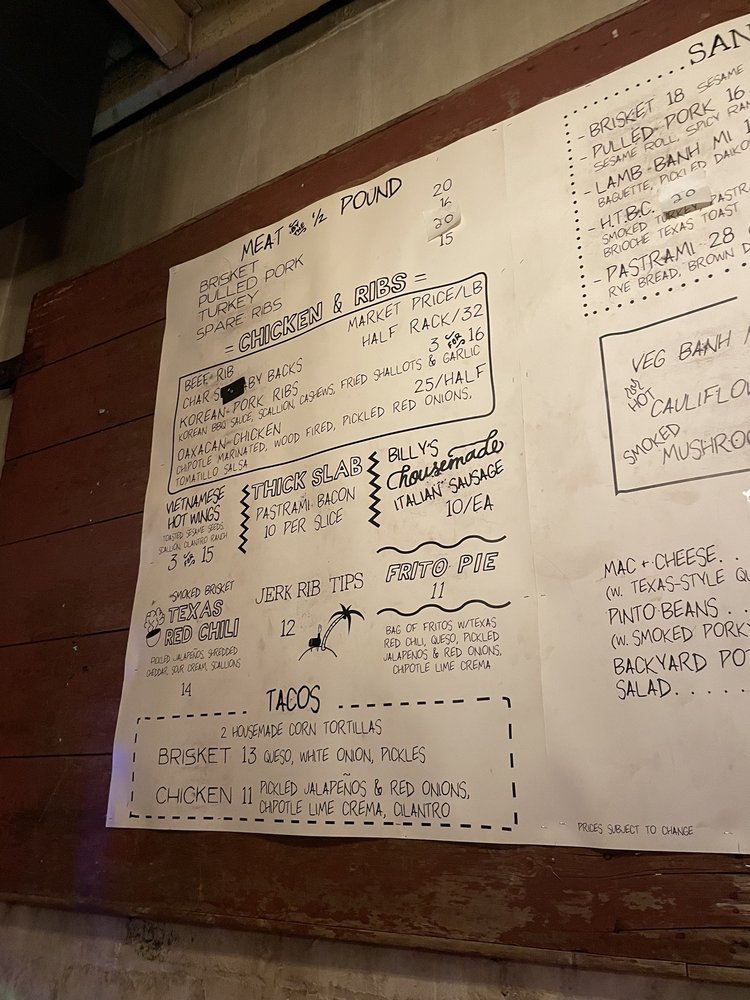 MEAT BY 1/2 POUND
BRISKET 20
PULLED PORK 16
TURKEY 20
SPARE RIBS 15
= CHICKEN & RIBS =
BEEF RIB MARKET PRICE/LB
CHAR S BY BACKS HALF RACK/32
KOREAN PORK RIBS 3 FOR 16
KOREAN BBQ SAUCE, SCALLION, CASHEWS, FRIED SHALLOTS & GARLIC
OAXACAN CHICKEN 25/HALF
CHIPOTLE MARINATED, WOOD FIRED, PICKLED RED ONIONS,
TOMATILLO SALSA
VIETNAMESE
HOT WINGS
TOASTED SESAME SEEDS,
SCALLION, CILANTRO RANCH
3 FOR 15
THICK SLAB
PASTRAMI BACON
10 PER SLICE
BILLY'S
housemade
ITALIAN SAUSAGE
10/EA
SMOKED BRISKET
TEXAS
RED CHILI
PICKLED JALAPEÑOS, SHREDDED
CHEDDAR, SOUR CREAM, SCALLIONS
14
JERK RIB TIPS
12
FRITO PIE
11
BAG OF FRITOS W/TEXAS
RED CHILI, QUESO, PICKLED
JALAPEÑOS & RED ONIONS,
CHIPOTLE LIME CREMA
TACOS
2 HOUSEMADE CORN TORTILLAS
BRISKET 13 QUESO, WHITE ONION, PICKLES
CHICKEN 11 PICKLED JALAPEÑOS & RED ONIONS,
CHIPOTLE LIME CREMA, CILANTRO
SAN
- BRISKET 18 SESAME
- PULLED PORK 16
SESAME ROLL, SPICY RAN
- LAMB BANH MI 1
BAGUETTE, PICKLED DAIKO
- H.T.B.C. 20
SMOKED TURKEY, PASTRA
BRIOCHE TEXAS TOAST
- PASTRAMI 28
RYE BREAD, BROWN
VEG BANH
HOT
CAULIFLO
SMOKED
MUSHRO
MAC + CHEESE. .
(W. TEXAS-STYLE QU
PINTO BEANS . .
(W. SMOKED PORK
BACKYARD POT
SALAD. . . . .
PRICES SUBJECT TO CHANGE